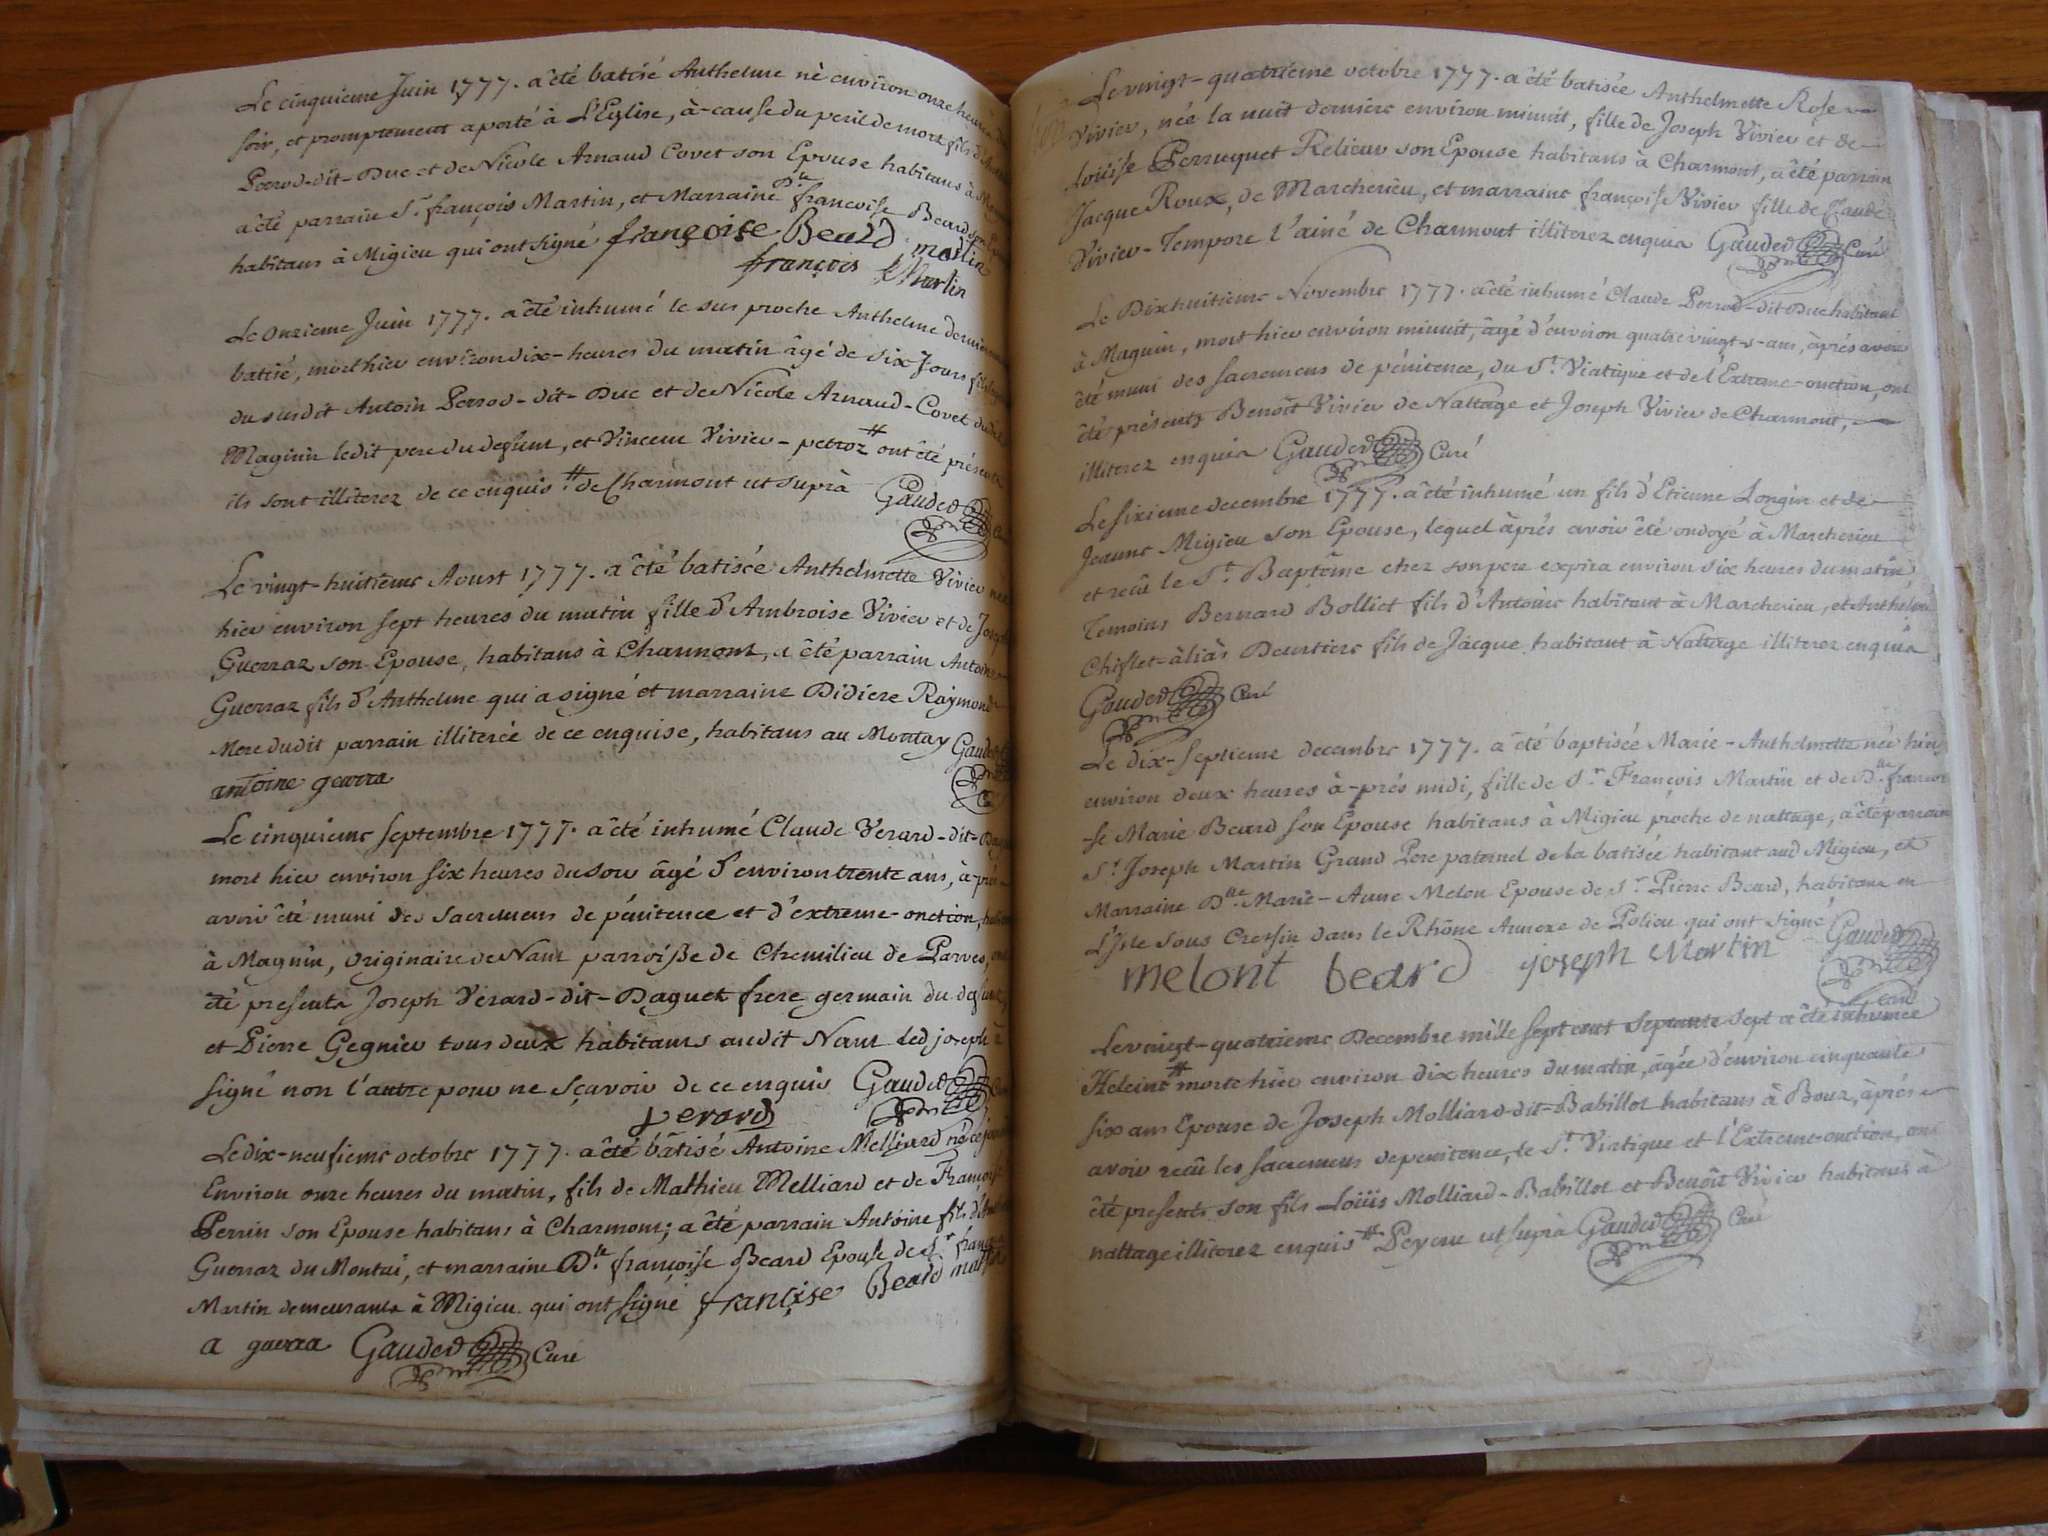 Le cinquieme Juin 1777. a été batisé Anthelme né environ onze heures du
soir, et promptement aporté à L'Eglise, à-cause du peril de mort, fils d'
Perrod-dit-Duc et de Nicole Arnaud Covet son Epouse habitans à
a été parrain Sr. françois Martin, et Marraine Dlle françoise Beard son
habitans à Migieu qui ont signé françoise Beard martin
françois Martin
Le onzieme Juin 1777. a été inhumé le sus proche Anthelme
batisé, mort hier environ dix-heures du matin âgé de six Jours fils
du susdit Antoin Perrod-dit-Duc et de Nicole Arnaud-Covet
Magnin ledit pere du defunt, et Vincent Vivier-petroz # ont été présents
ils sont illiterez de ce enquis # de Charmont ut suprà Gauded
Le vingt-huitieme Aoust 1777. a été batisée Anthelmette Vivier née
hier environ sept heures du matin fille d'Ambroise Vivier et de
Guerraz son Epouse, habitans à Charmont, a été parrain Antoine
Guerraz fils d'Anthelme qui a signé et marraine Didiere Raymond
Mere dudit parrain illiterée de ce enquise, habitans au Montay Gauded
antoine gearra
Le cinquieme septembre 1777. a été inhumé Claude Verard-dit-
mort hier environ six heures du soir âgé d'environ trente ans, à-prés
avoir été muni des sacremens de pénitence et d'extreme-onction,
à Magnin, originaire de Nant parroisse de Chemilieu de Parves,
été presents Joseph Verard-dit-Daguet frere germain du defunt
et Pierre Gegnieu tous deux habitants audit Nant led joseph à
signé non l'autre pour ne sçavoir de ce enquis Gauded
verard
Le dix-neufieme octobre 1777. a été bâtisé Antoine Melliard né ce
Environ onze heures du matin, fils de Mathieu Melliard et de
Perrin son Epouse habitans à Charmont; a été parrain Antoine fils
Guerraz du Montai, et marraine Dlle françoise Beard Epouse de Sr
Martin demeurants à Migieu qui ont signé françise Beard
a guerra Gauded Curé
Le vingt-quatrieme octobre 1777. a été batisée Anthelmette Rose
Vivier, née la nuit derniere environ minuit, fille de Joseph Vivier et de
Loüise Perruquet Relieur son Epouse habitans à Charmont, a été parrain
Jacque Roux, de Marcherieu, et marraine françoise Vivier fille de Claude
Vivier-Tempore l'ainé de Charmont illiterez enquis Gauded Curé
Le Dixhuitieme Novembre 1777. a été inhumé Claude Perrod-dit Duc habitant
à Magnin, mort hier environ minuit, âgé d'environ quatre vingt-s-ans, àprés avoir
été muni des sacremens de pénitence, du St. Viatique et de l'Extreme-onction, ont
été présents Benoît Vivier de Nattage et Joseph Vivier de Charmont,
illiterez enquis Gauded Curé
Le sixieme decembre 1777. a été inhumé un fils d'Etienne Longin et de
Jeanne Migieu son Epouse, lequel àprés avoir été ondoyé à Marcherieu
et recû le St. Baptême chez son pere expira environ six heures du matin
Temoins Bernard Bolliet fils d'Antoine habitant à Marcherieu, et Anthelme
Chiflet-àliàs Deurtiere fils de Jacque habitant à Nattage illiterez enquis
Gauded Curé
Le dix-septieme decembre 1777. a été baptisée Marie-Anthelmette née hier
environ deux heures à-prés midi, fille de Sr. François Martin et de Dlle françoi
-se Marie Beard son Epouse habitans à Migieu proche de nattage, a été parrain
Sr. Joseph Martin Grand Pere paternel de la batisée habitant aud Migieu, et
Marraine Dlle Marie-Anne Melon Epouse de Sr. Pierre Beard, habitans en
L'Isle sous Cressin dans le Rhône Annexe de Polieu qui ont signé Gauded
melont beard joseph Martin
Curé
Le vingt-quatrieme Decembre mille sept cent septante sept a été inhumée
Heleine # morte hier environ dix heures du matin, âgée d'environ cinquante
six ans Epouse de Joseph Molliard-dit-Babillot habitans à Bouz, àprés
avoir recû les sacremens de penitence, le St. Viatique et l'Extreme-onction, ont
été presents son fils Loüis Molliard-Babillot et Benoît Vivier habitans à
nattage illiterez enquis # Peyene ut suprà Gauded Curé